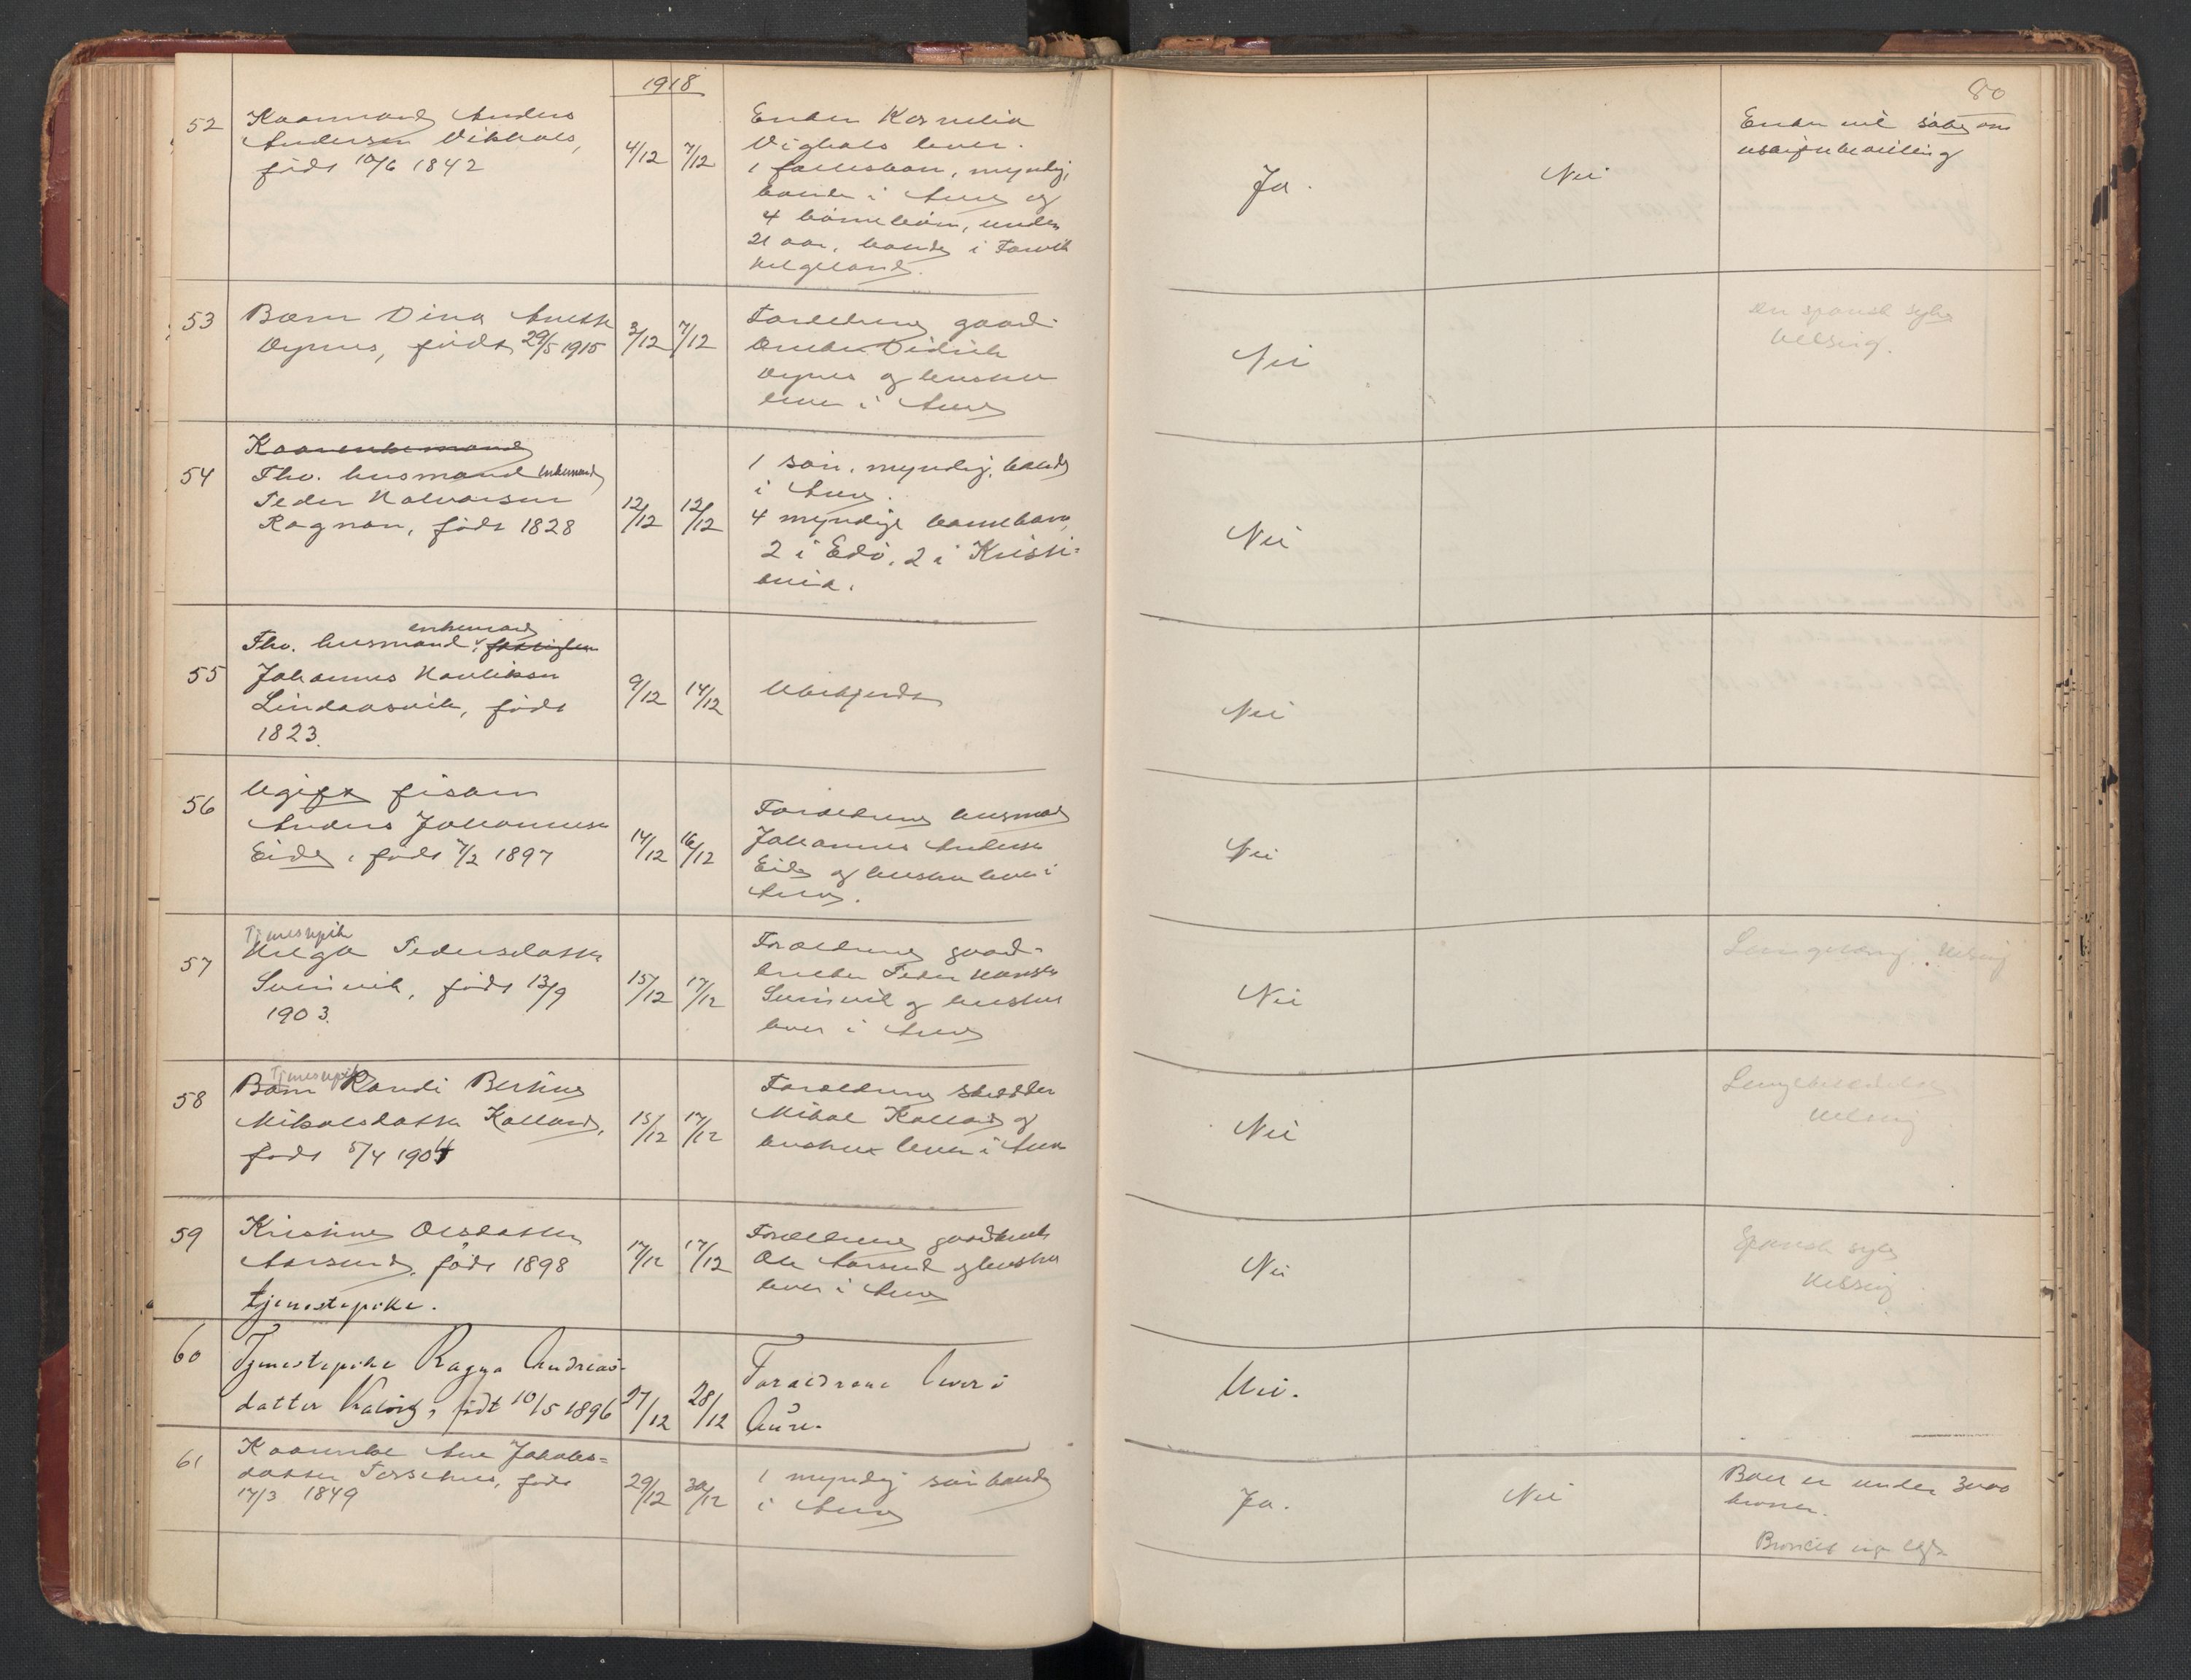 1918
52
Kaarmand Anders
Andersen Vikhals,
født 10/6 1842
4/12 7/12
Enken Kornelia
Vighals lever.
1 fællesbarn, myndig,
bande i Aure og
4 børnebørn, under
21 aar, bande i Torvik
Helgeland.
53
Barn Dina Anette
Øynes, født 29/5 1915
3/12 7/12
Forældrene gaard-
bruker Didrik
Øynes og hustru
lever i Aure
54
Kaarenkemand
Fhv. husmand enkemand
Peder Halvorsen
Ragnan, født 1828
12/12 12/12
1 søn, myndig, bande
i Aure.
4 myndige barnebarn,
2 i Edø, 2 i Kristi-
ania.
55
enkemand
Fhv. husmand
Johannes Henriksen
Lindaasvik, født
1823.
9/12 14/12
Ubekjendt
56
Ugift fisker
Anders Johannesen
Eide, født 7/2 1897
14/12 16/12
Forældrene husmand
Johannes Andersen
Eide og hustru lever i
Aure.
57
Tjenestepike
Helga Pedersdatter
Svinvik, født 13/9
1903.
15/12 17/12
Forældrene gaard-
bruker Peder Hansen
Svinvik og hustru
lever i Aure
58
Tjenestepike
Barn Randi Bertine
Mikalsdatter Kalland,
født 5/4 1904
15/12 17/12
Forældrene skrædder
Mikal Kalland og
hustru lever i Aure
59
Kristine Olsdatter
Aarsund, født 1898
tjenestepike.
17/12 17/12
Forældrene gaardbruker
Ole Aarsund og hustru
lever i Aure
60
Tjenestepike Ragna Andreas-
datter Kalvig, født 10/5 1896
27/12 28/12
Forældrene lever i
Aure.
61
Kaarenke Ane Jakobs-
datter Torsethnes, født
17/3 1849
29/12 30/12
1 myndig søn bande
i Aure
80
Ja.
Nei
Enken vil søke om
uskiftebevilling
Nei
Den spanske syke
Velsing.
Nei
Nei
Nei
Nei
Velsing
Nei
Lungebetændelse
Velsing
Nei
Spansk syke
Velsing
Nei.
Ja.
Nei
Boet er under 3000
kroner.